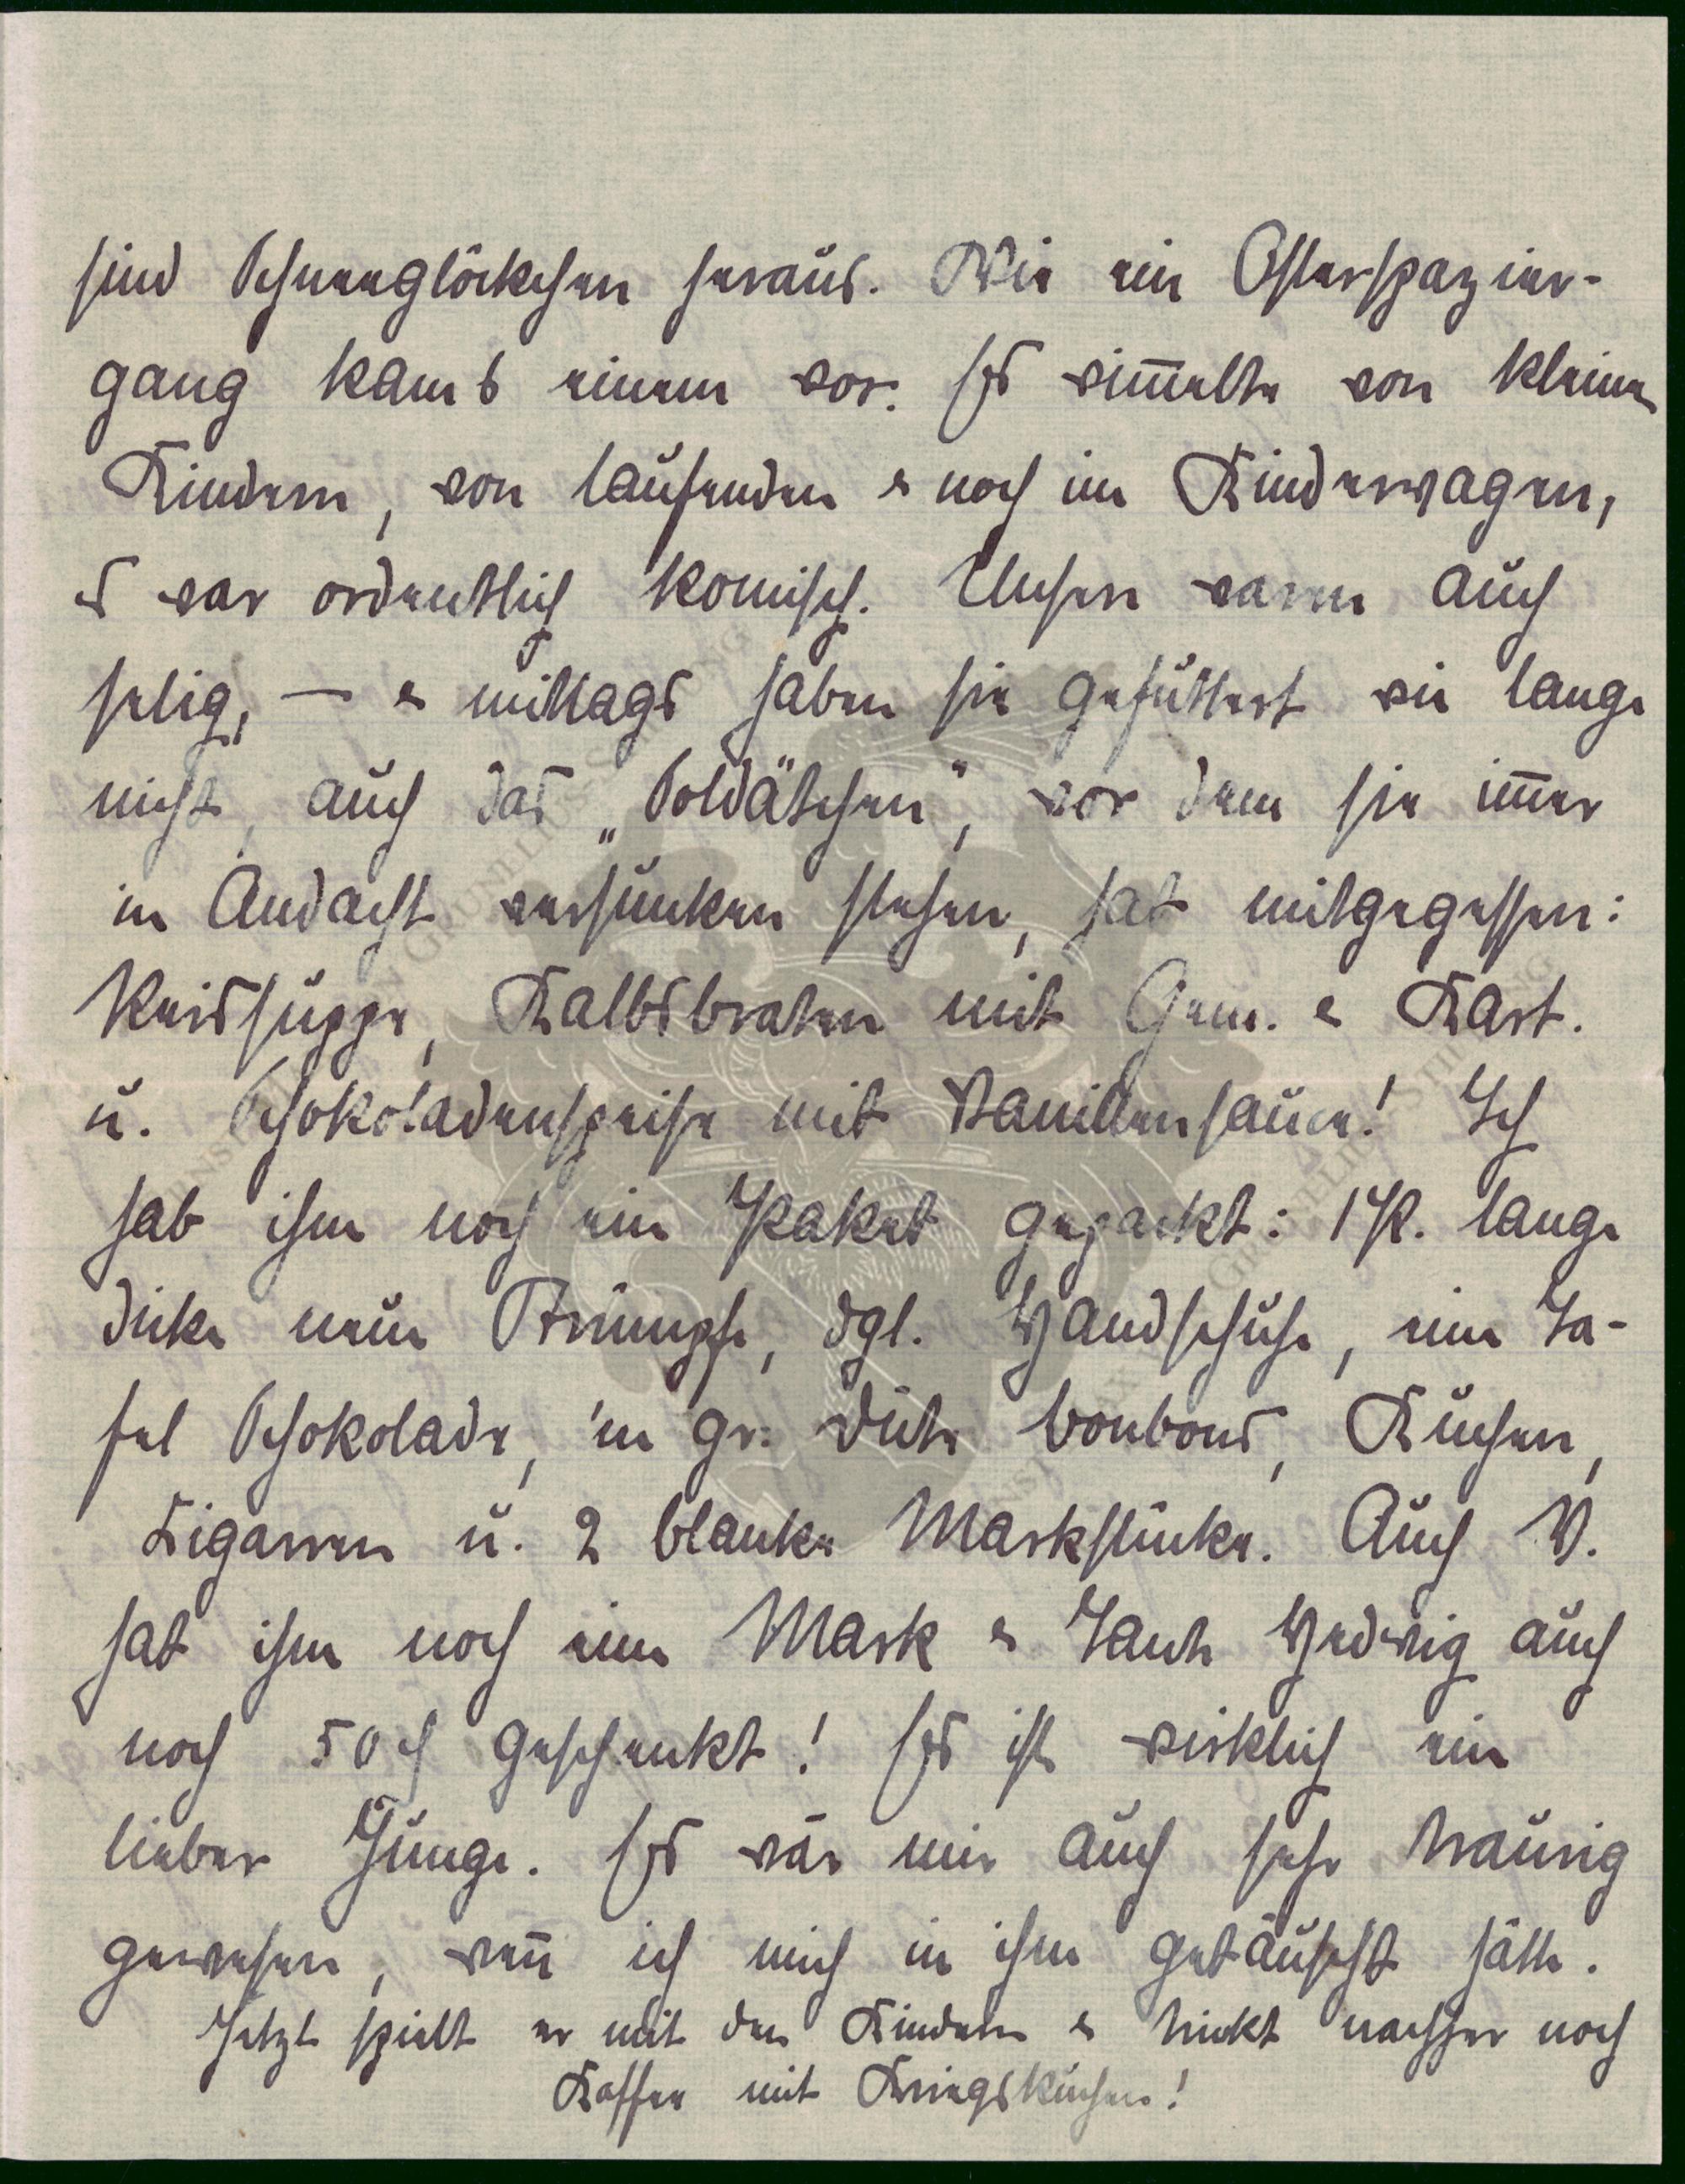 sind Schneeglöckchen heraus. Wie ein Osterspazier-
gang kams einem vor. Es wim̅elte von kleinen
Kindern, von laufenden & noch im Kinderwagen,
es war ordentlich komisch. Unsere waren auch
selig, — & mittags haben sie gefuttert wie lange
nicht, auch das „Soldätchen", vor dem sie im̅er
in Andacht versunken stehen, hat mitgegessen:
Reissuppe, Kalbsbraten mit Gem. & Kart.
u. Schokoladenspeise mit Vanillensauce! Ich
hab ihm noch ein Paket gepackt: 1 P. lange
dicke neue Strümpfe, dgl. Handschuhe, eine Ta-
fel Schokolade, 'ne gr. Düte bonbons, Kuchen,
Zigarren u. 2 blanke Markstücke. Auch V.
hat ihm noch eine Mark & Tante Hedwig auch
noch 50 ₰ geschenkt! Es ist wirklich ein
lieber Junge. Es wär mir auch sehr traurig
gewesen, wen̅ ich mich in ihm getäuscht hätte.
Jetzt spielt er mit den Kindern & trinkt nachher noch
Kaffee mit Kriegskuchen!